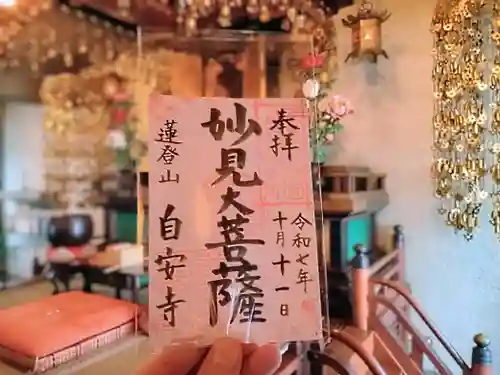 奉拝
令和七年
十月十一日
妙見大菩薩
蓮登山 自安寺